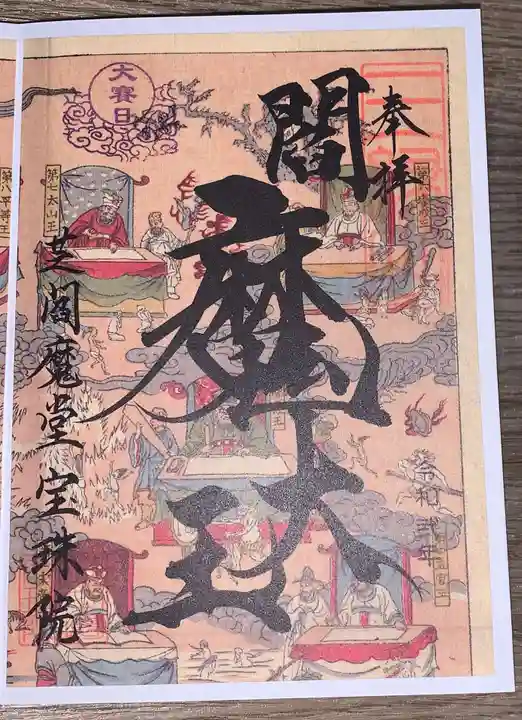 奉拝
閻魔大王
令和弐年
芝閻魔堂宝珠院
大賽日
第七太山王
第八平等王